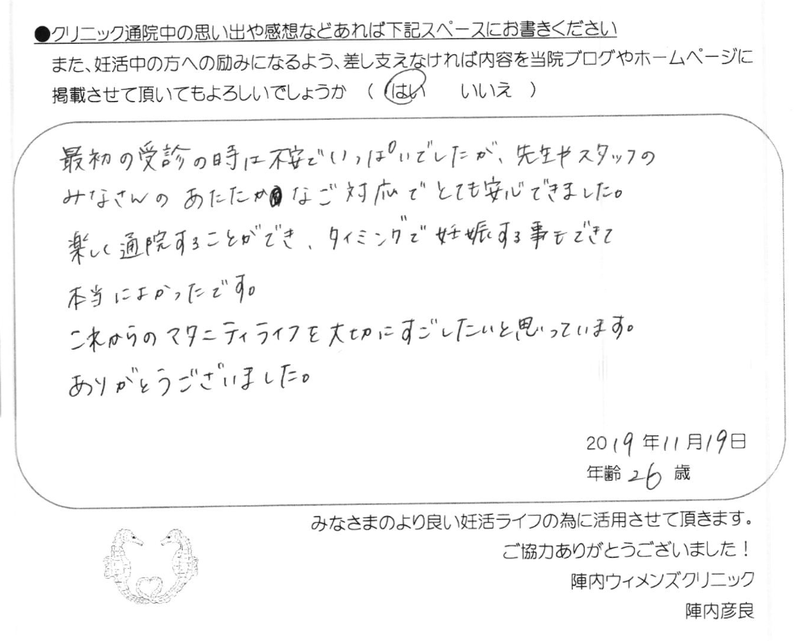 ●クリニック通院中の思い出や感想などあれば下記スペースにお書きください
また、妊活中の方への励みになるよう、差し支えなければ内容を当院ブログやホームページに
掲載させて頂いてもよろしいでしょうか （ はい いいえ ）
最初の受診の時は不安でいっぱいでしたが、先生やスタッフの
みなさんの あたたかなご対応でとても安心できました。
楽しく通院することができ、タイミングで妊娠する事もできて
本当によかったです。
これからのマタニティライフを大切にすごしたいと思っています。
ありがとうございました。
2019年11月19日
年齢 26 歳
みなさまのより良い妊活ライフの為に活用させて頂きます。
ご協力ありがとうございました！
陣内ウィメンズクリニック
陣内彦良